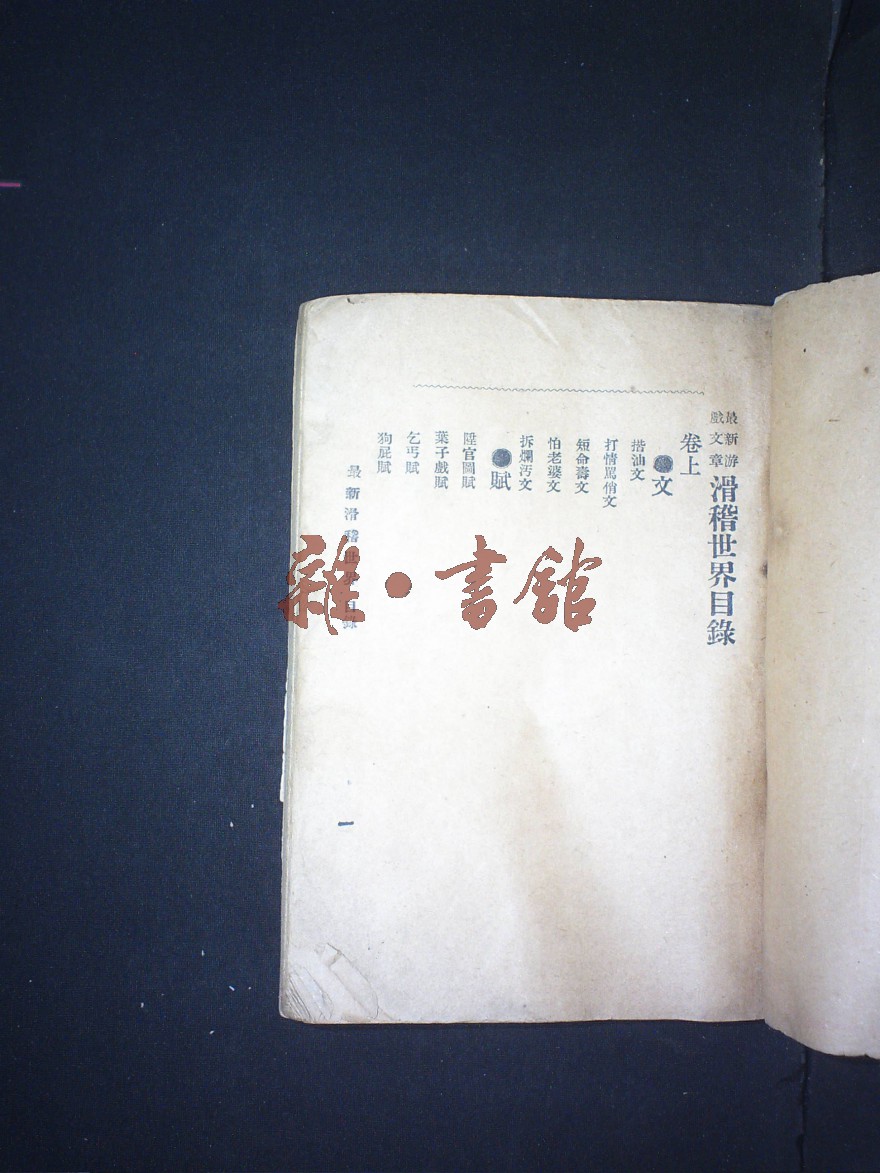 最新游戲文章 滑稽世界目錄
卷上
●文
揩油文
打情罵俏文
短命壽文
怕老婆文
拆爛汚文
●賦
陞官圖賦
葉子戲賦
乞丐賦
狗屁賦
最新滑稽世界目錄
一
雜·書館